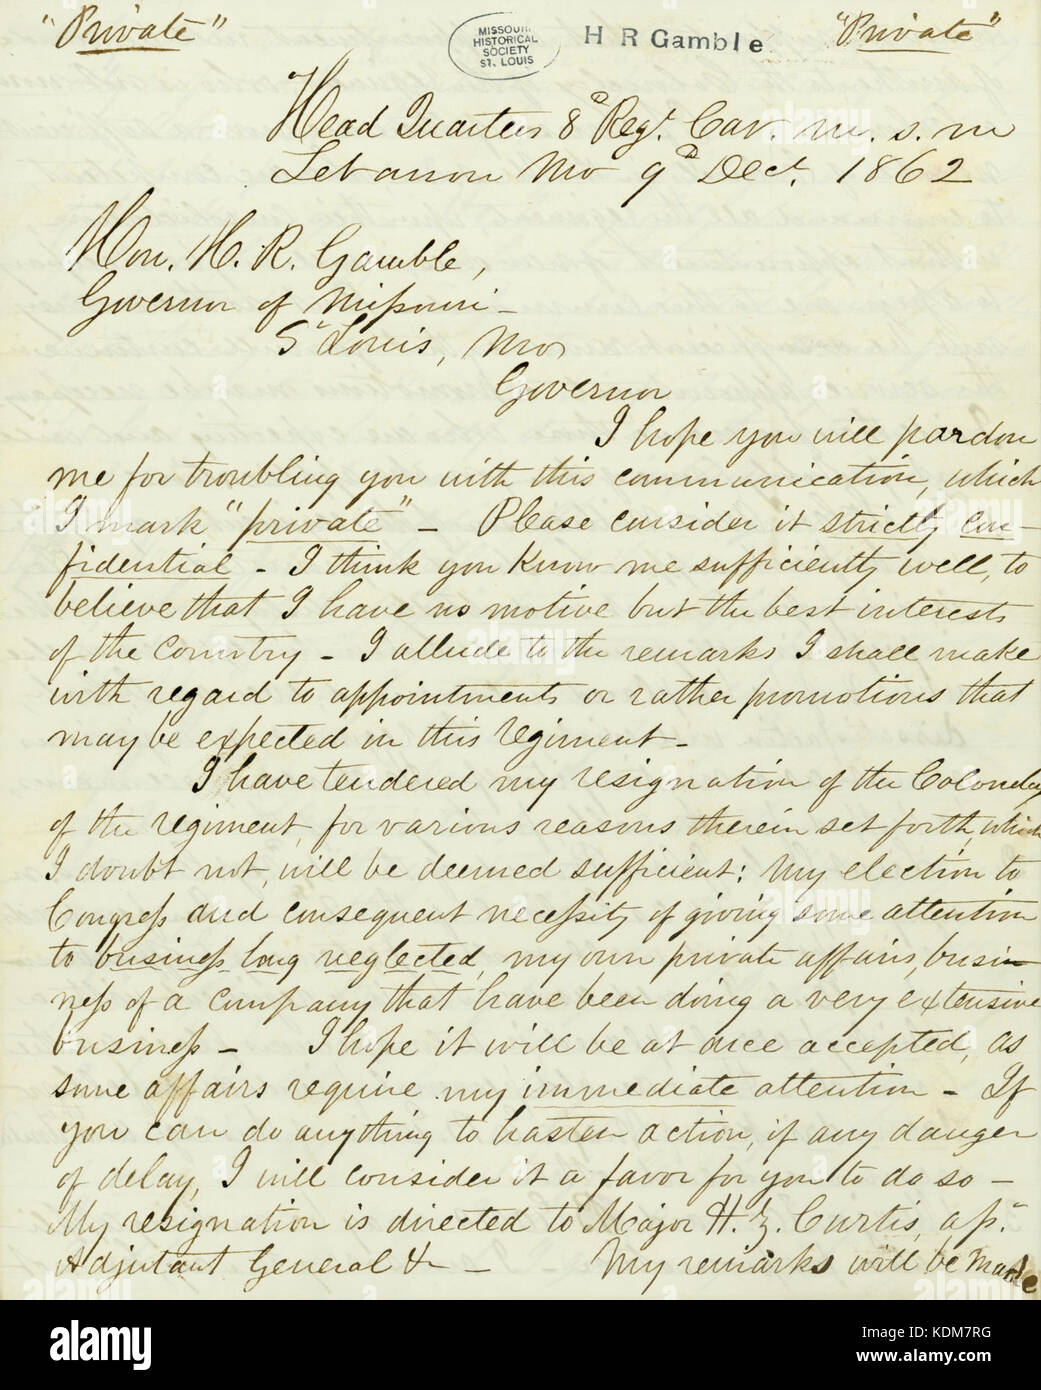 "Private"
MISSOURI
HISTORICAL
SOCIETY
ST. LOUIS
H R Gamble
"Private"
Head Quarters 8th Regt. Cav. M. S. M
Lebanon Mo 9th Dect. 1862
Hon. H. R. Gamble,
Governor of Missouri -
St Louis, Mo
Governor
I hope you will pardon
me for troubling you with this communication, which
I mark "private" - Please consider it strictly con-
fidential - I think you know me sufficiently well, to
believe that I have no motive but the best interests
of the Country - I allude to the remarks I shall make
with regard to appointments or rather promotions that
may be expected in this regiment -
I have tendered my resignation of the Colonelcy
of the regiment, for various reasons therein set forth, which
I doubt not, will be deemed sufficient: My election to
Congress and consequent necessity of giving some attention
to business long neglected, my own private affairs, busi-
ness of a company that have been doing a very extensive
business - I hope it will be at once accepted, as
some affairs require my immediate attention - If
you can do anything to hasten action, if any danger
of delay, I will consider it a favor for you to do so -
My resignation is directed to Major H. Z. Curtis, ass.
Adjutant General &c - My remarks will be made
alamy
Image ID: KDM7RG
www.alamy.com